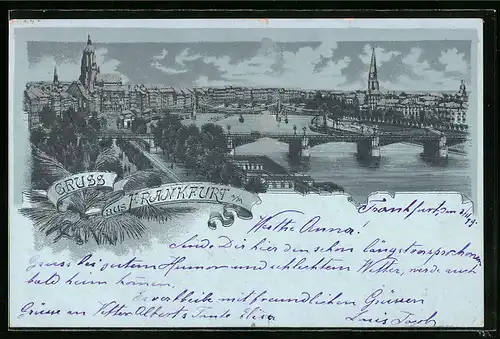 GRUSS
aus FRANKFURT a/M
Frankfurt
Werthe Anna!
Sende Dir hier den schon längst versprochenen
Gruss bei gutem Humor und schlechtem Wetter, werde auch
bald heim kommen.
Es verbleibt mit freundlichen Grüssen
Grüsse an Vetter Albert Tante Elisa Louis Jacob